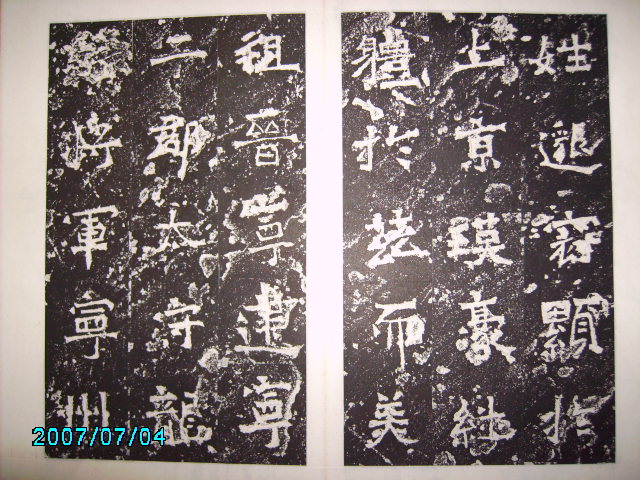 姓邈冠顯於
上京瑛豪繼
體於茲而美
祖晉寧建寧
二郡太守龍
驤將軍寧州
2007/07/04